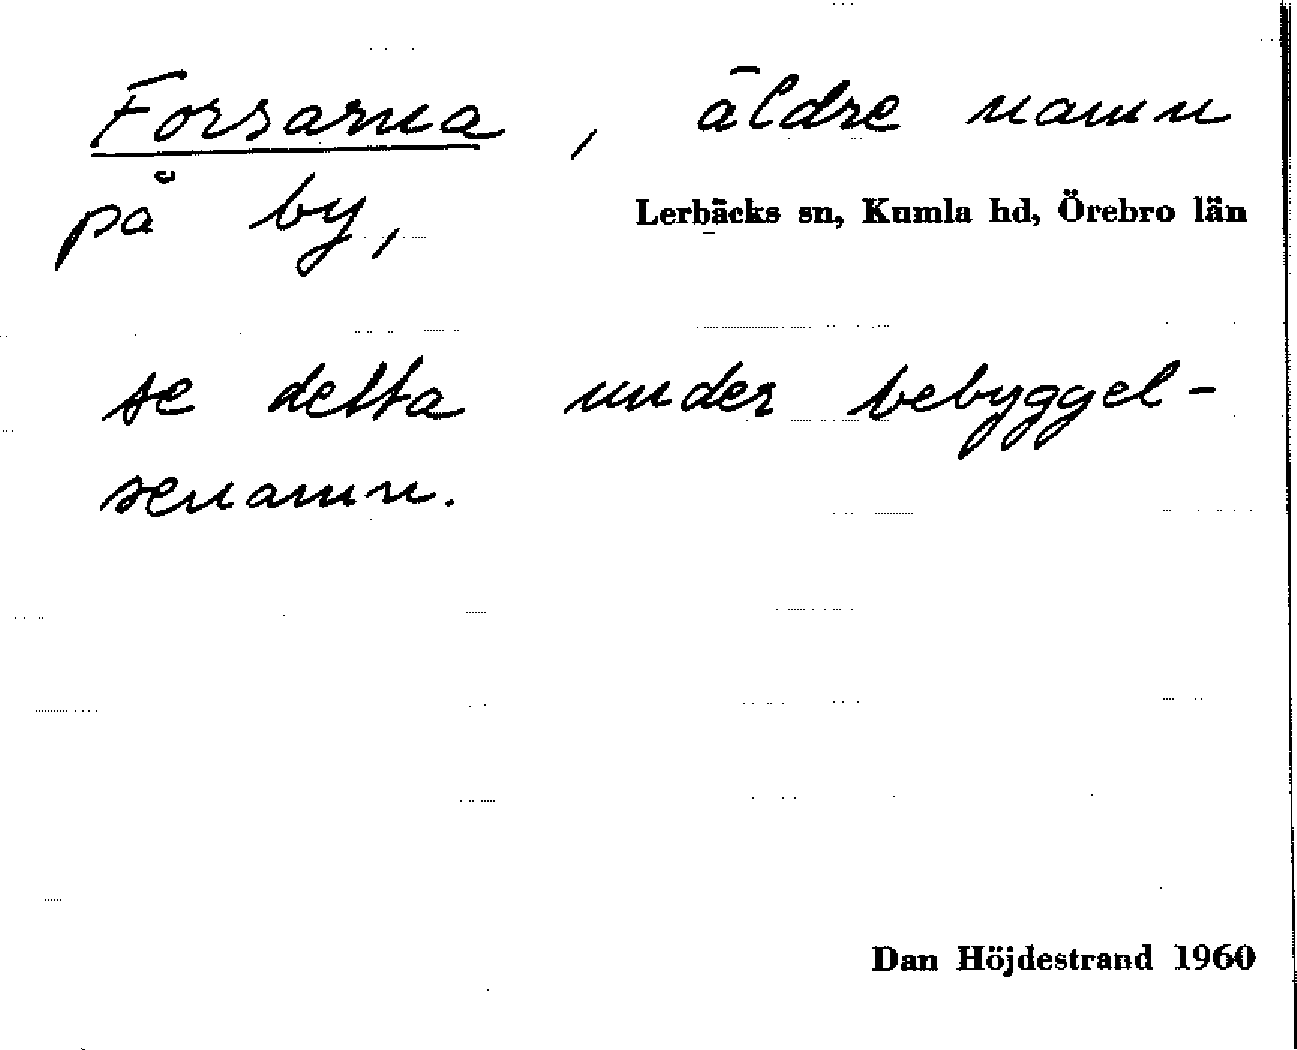 Forsarna, äldre namn
på by, Lerbäcks sn, Kumla hd, Örebro län
se detta under bebyggel-
senamn.
Dan Höjdestrand 1960